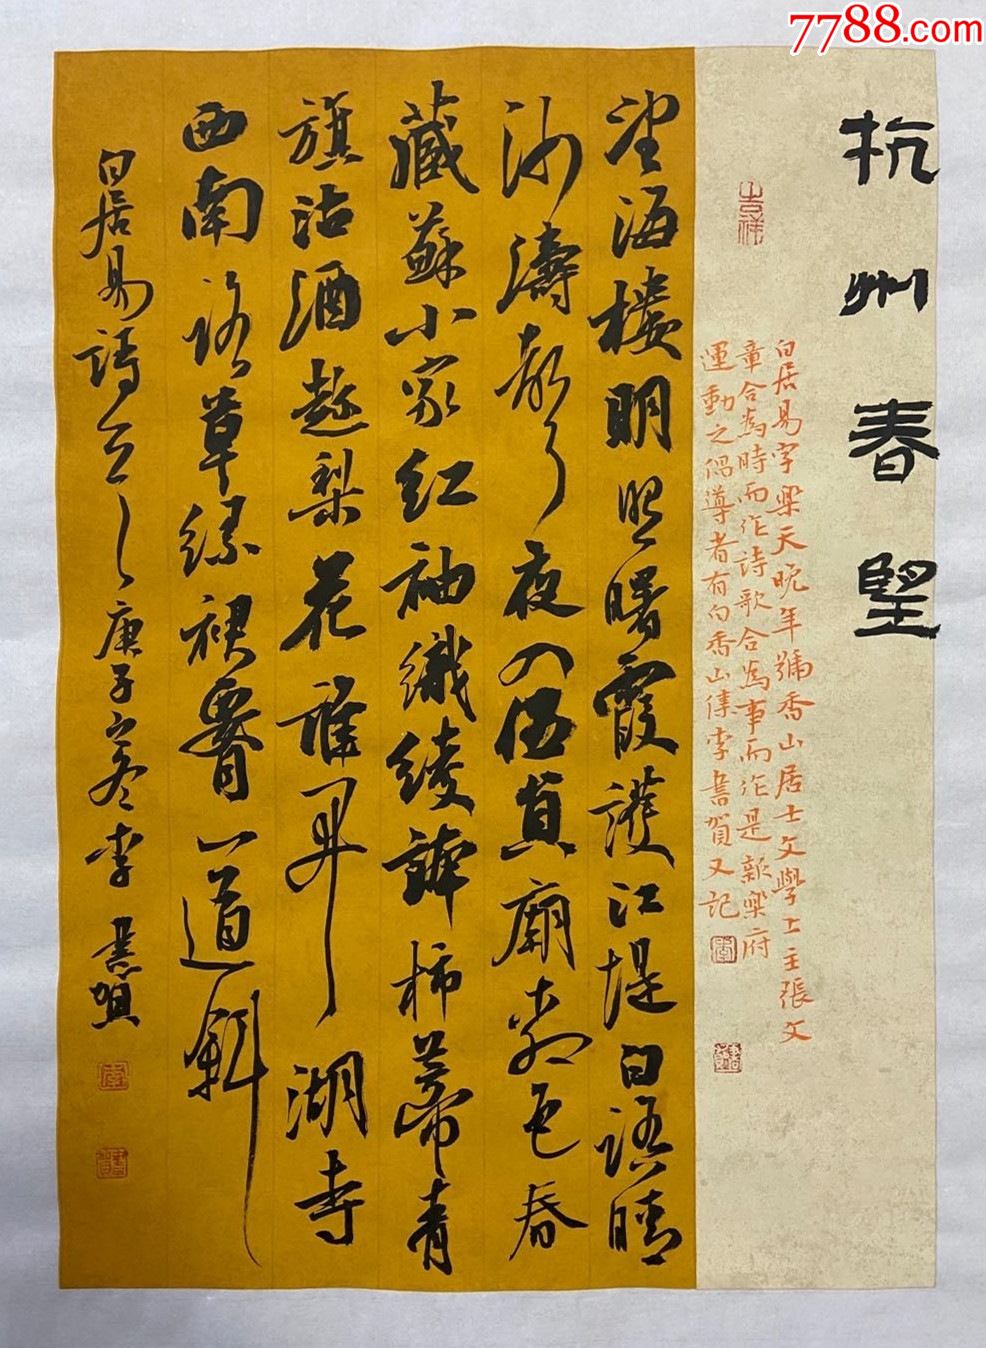 7788.com
杭州春望
吉祥
白居易字樂天晚年號香山居士文學上主張文
章合為時而作詩歌合為事而作是新樂府
運動之倡導者有白香山集李書賀又記
望海樓明照曙霞護江堤白踏晴
沙濤聲夜入伍員廟柳色春
藏蘇小家紅袖織綾誇柿蒂青
旗沽酒趁梨花誰開湖寺
西南路草綠裙腰一道斜
白居易詩 庚子之冬李書賀